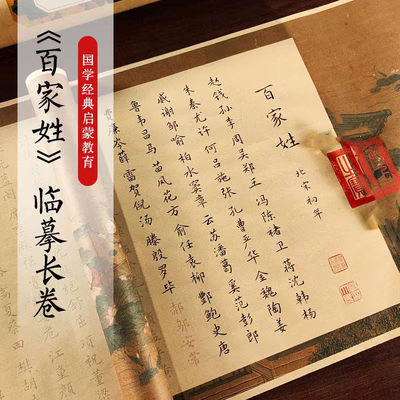 《百家姓》临摹长卷
国学经典启蒙教育
百家姓
北宋初年
赵钱孙李周吴郑王冯陈褚卫蒋沈韩杨
朱秦尤许何吕施张孔曹严华金魏陶姜
戚谢邹喻柏水窦章云苏潘葛奚范彭郎
鲁韦昌马苗凤花方俞任袁柳酆鲍史唐
费廉岑薛雷贺倪汤滕殷罗毕郝邬安常